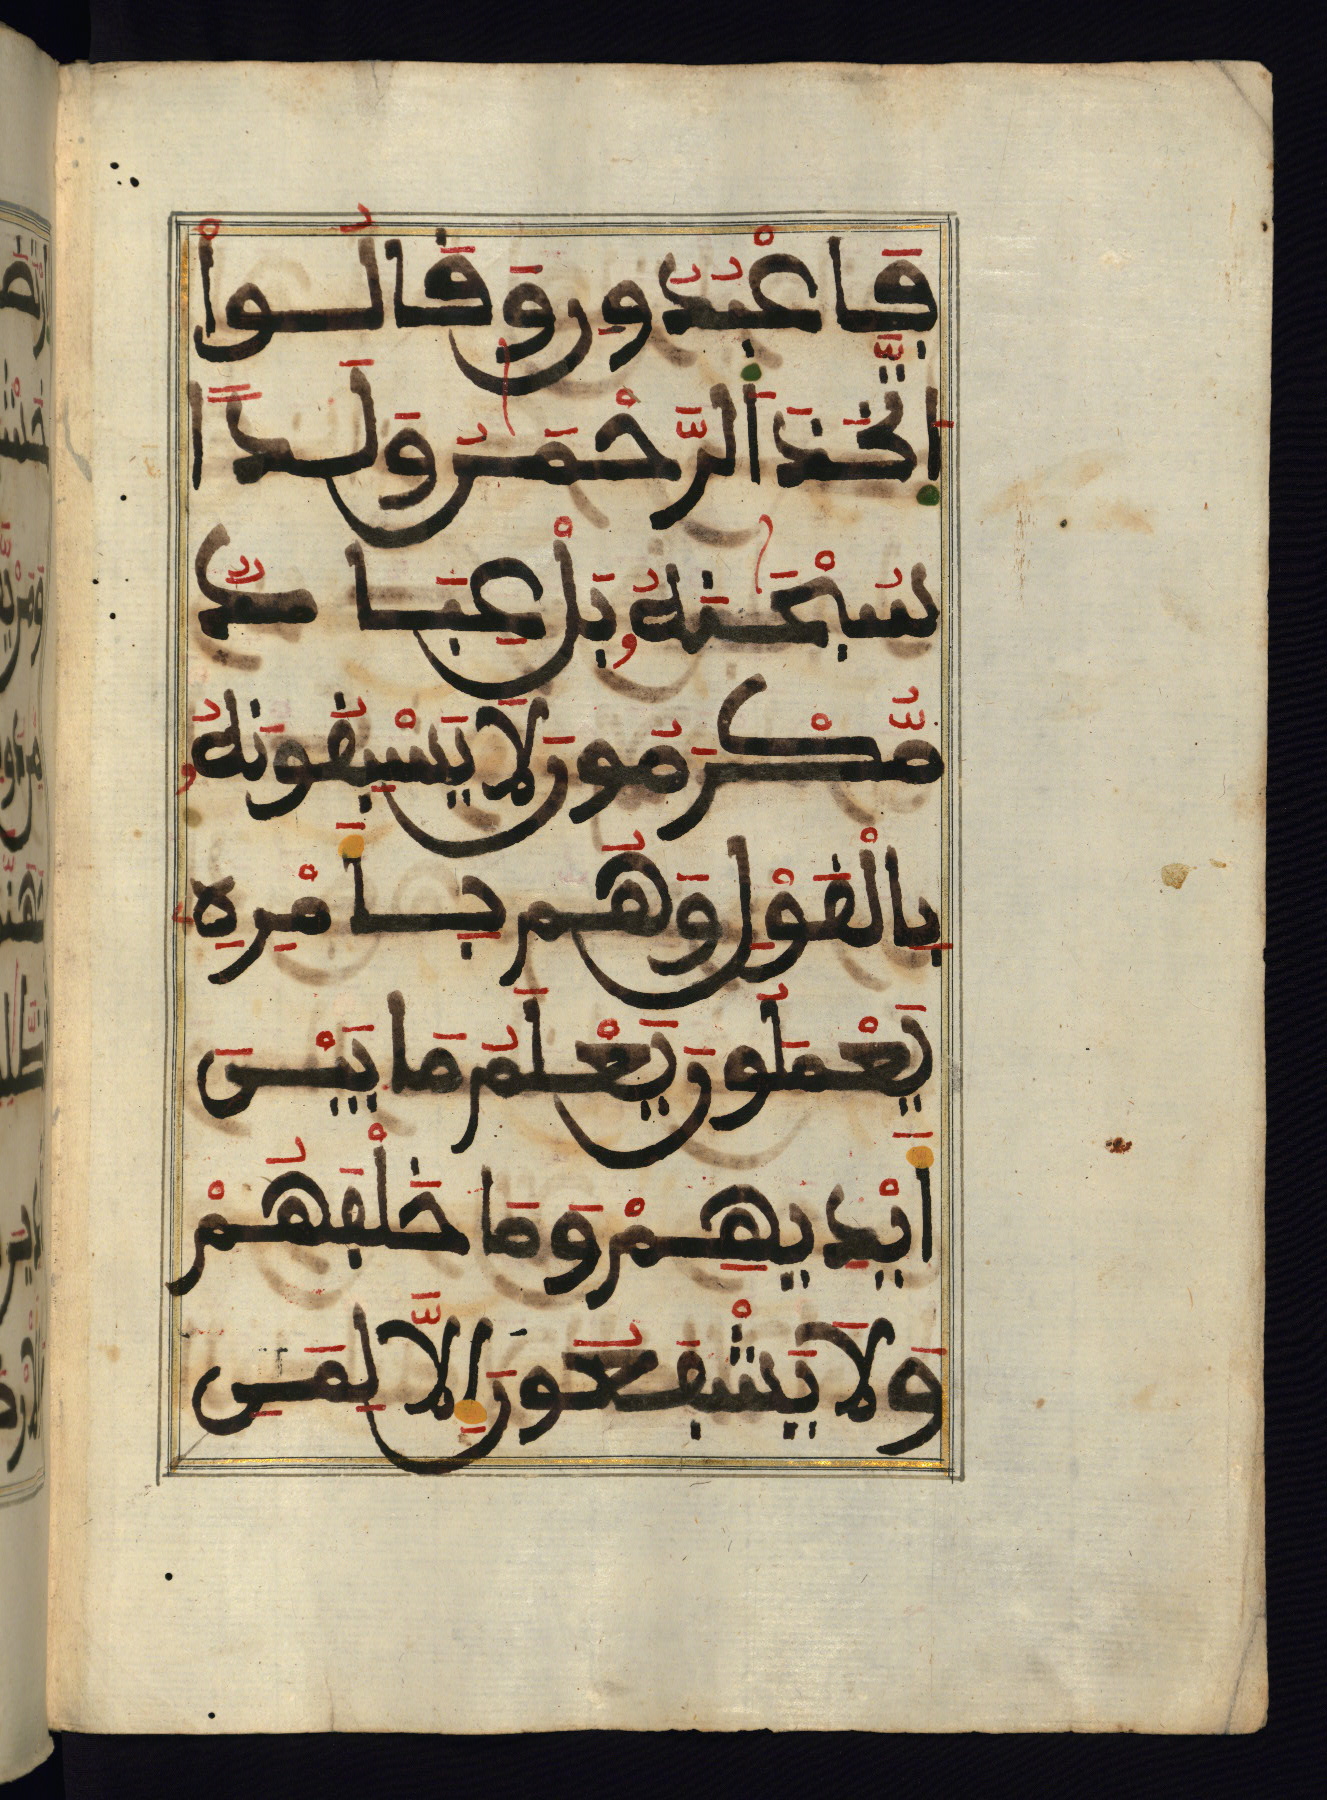 فَاعْبُدُونِ وَقَالُوا۟
اَ۬تَّخَذَ اَ۬لرَّحْمَٰنُ وَلَداًۗ
سُبْحَٰنَهُۥ بَلْ عِبَادٞ
مُّكْرَمُونَ لَا يَسْبِقُونَهُۥ
بِالْقَوْلِ وَهُم بِأَمْرِهِۦ
يَعْمَلُونَ يَعْلَمُ مَا بَيْنَ
أَيْدِيهِمْ وَمَا خَلْفَهُمْ
وَلَا يَشْفَعُونَ إِلَّا لِمَنِ